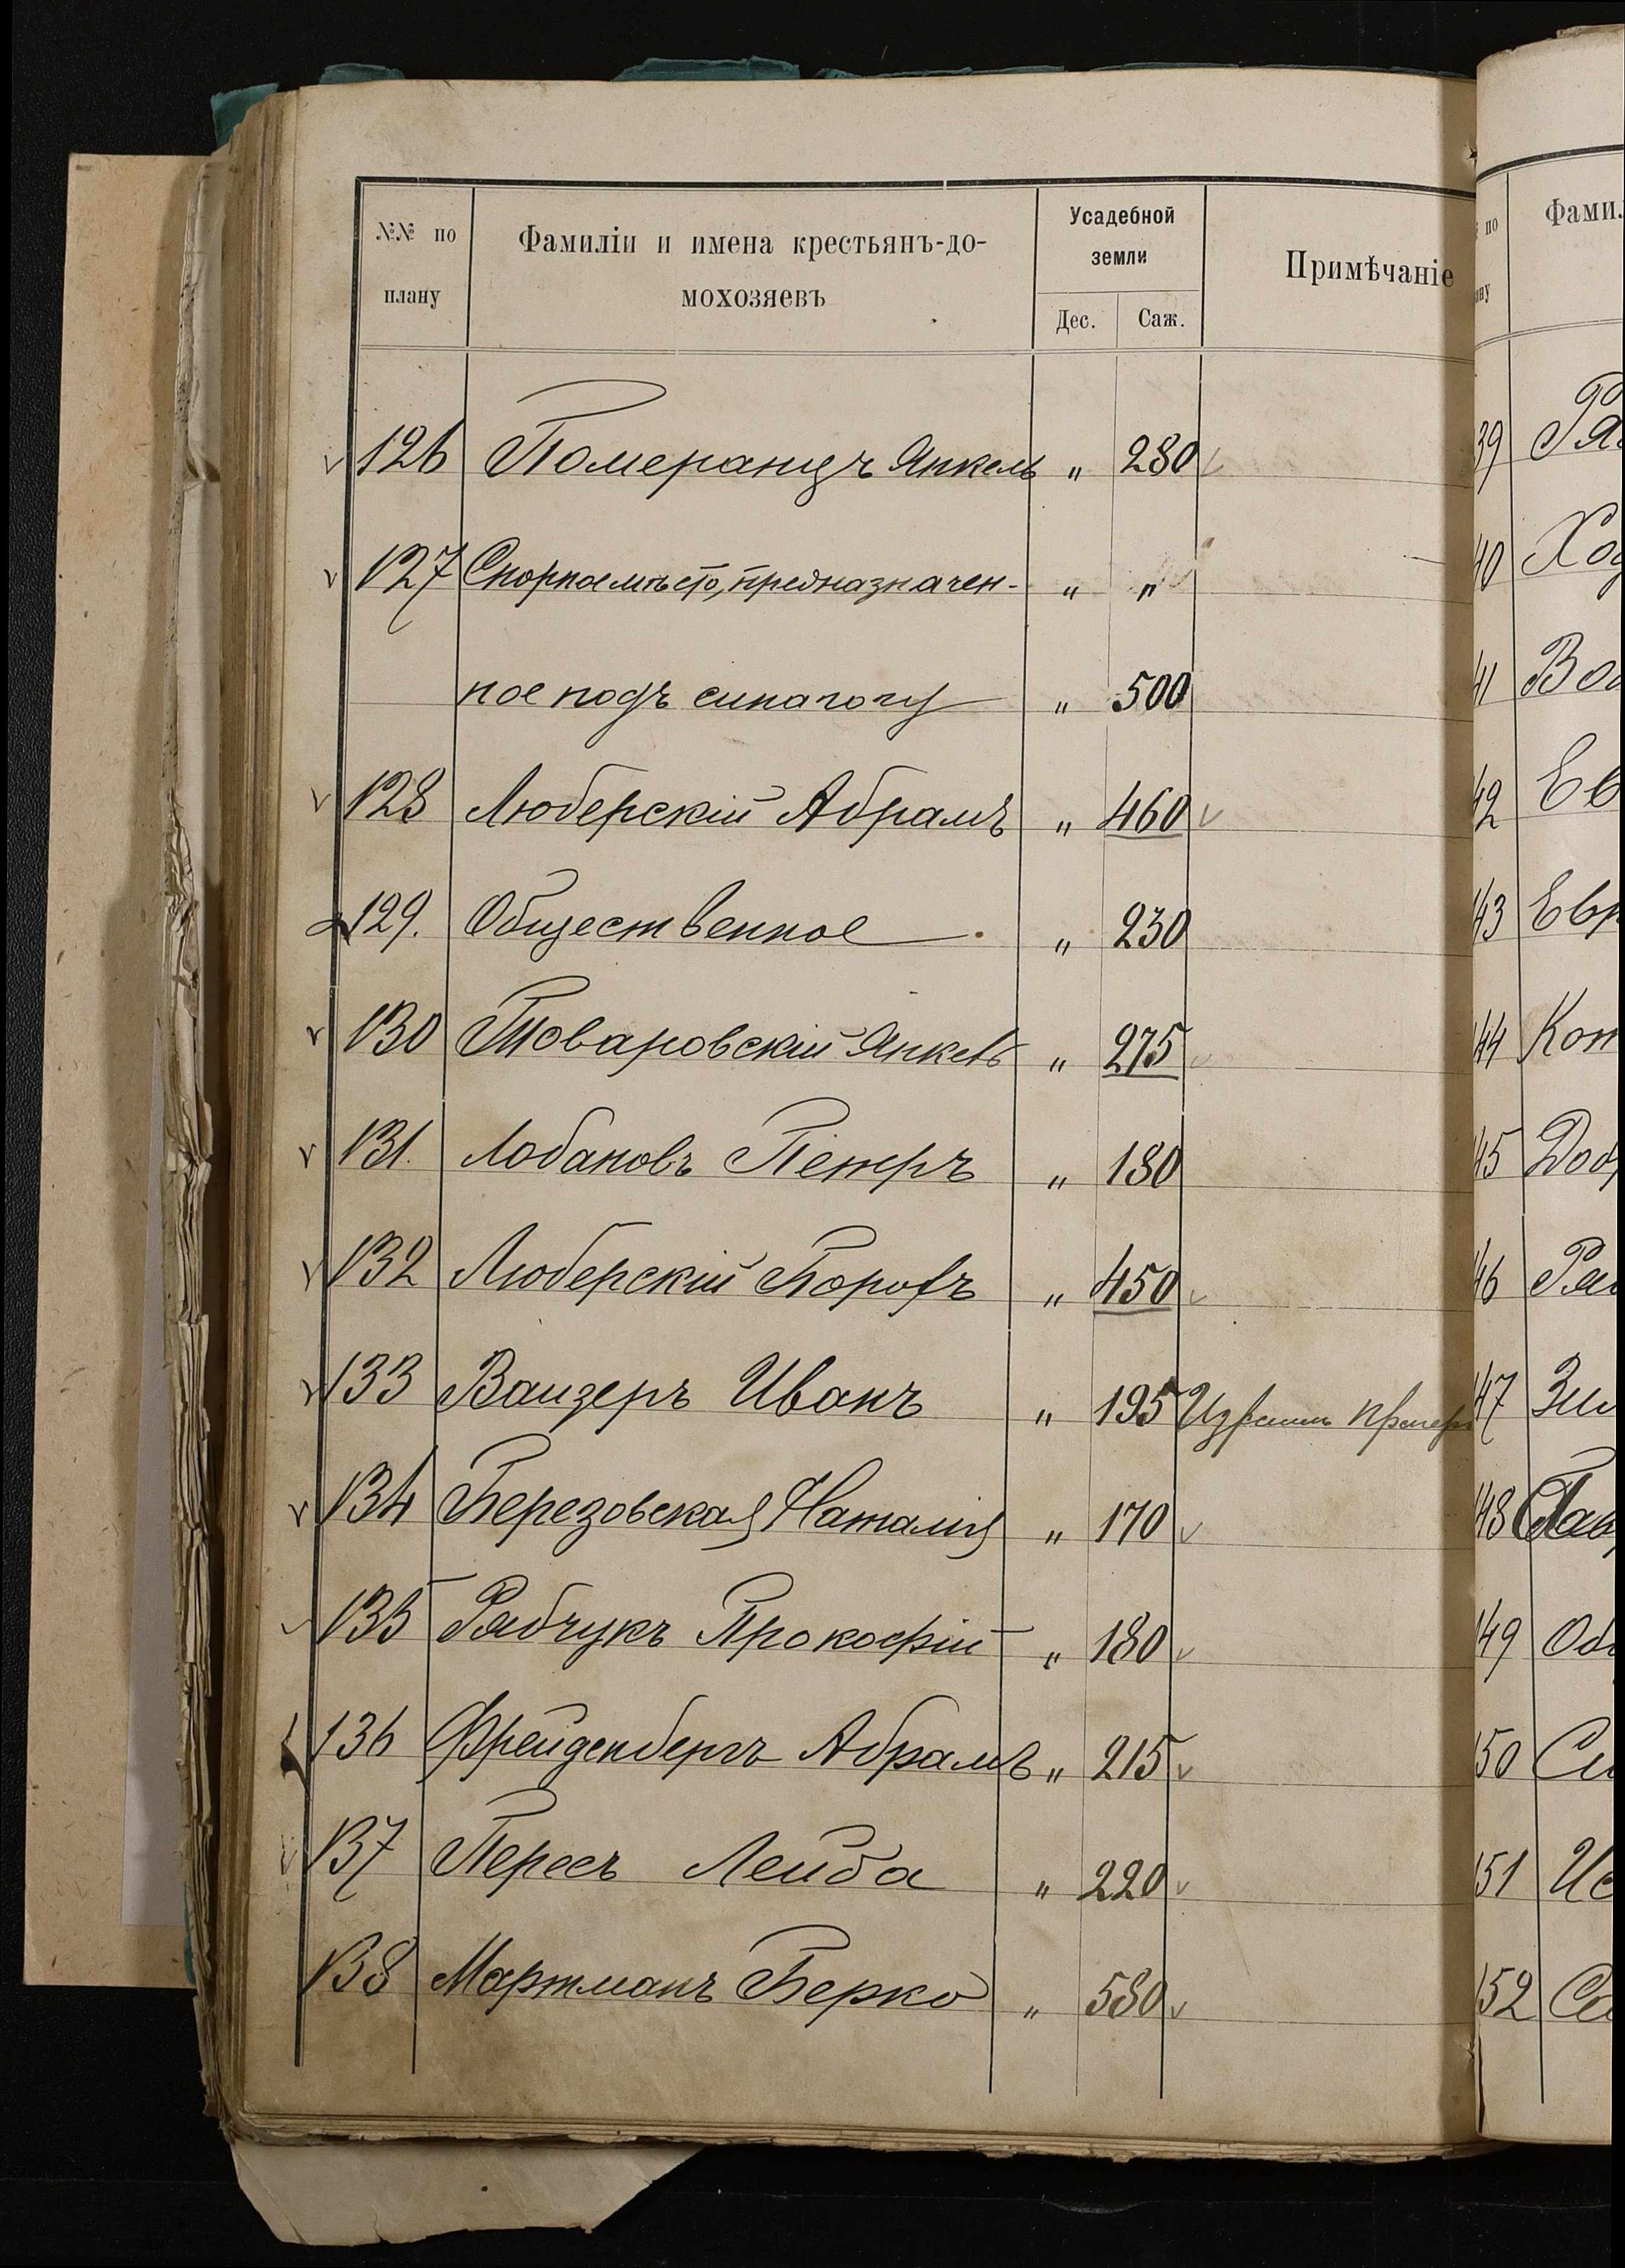 №№ по плану
Фамиліи и имена крестьянъ-до-
мохозяевъ
Усадебной
земли
Дес. Саж.
Примѣчаніе
126 Померанцъ Янкель „ 280
127 Спорное мѣсто, предназначен- „ „
ное подъ синагогу „ 500
128 Люберскій Абрамъ „ 460
129. Общественное „ 230
130 Товаровскій Янкель „ 275
131. Лобановъ Петръ „ 180
132 Люберскій Борохъ „ 450
133 Ваизеръ Иванъ „ 195
134 Березовская Наталия „ 170
135 Рябчукъ Прокофій „ 180
136 Фрейденбергъ Абрамъ „ 215
137 Пересъ Лейба „ 220
138 Мартманъ Берко „ 580
по
Фами
39
40 Ход
41
42 Ев
43 Евр
44 Кот
45
46
47
148
149 Об
150
151
152